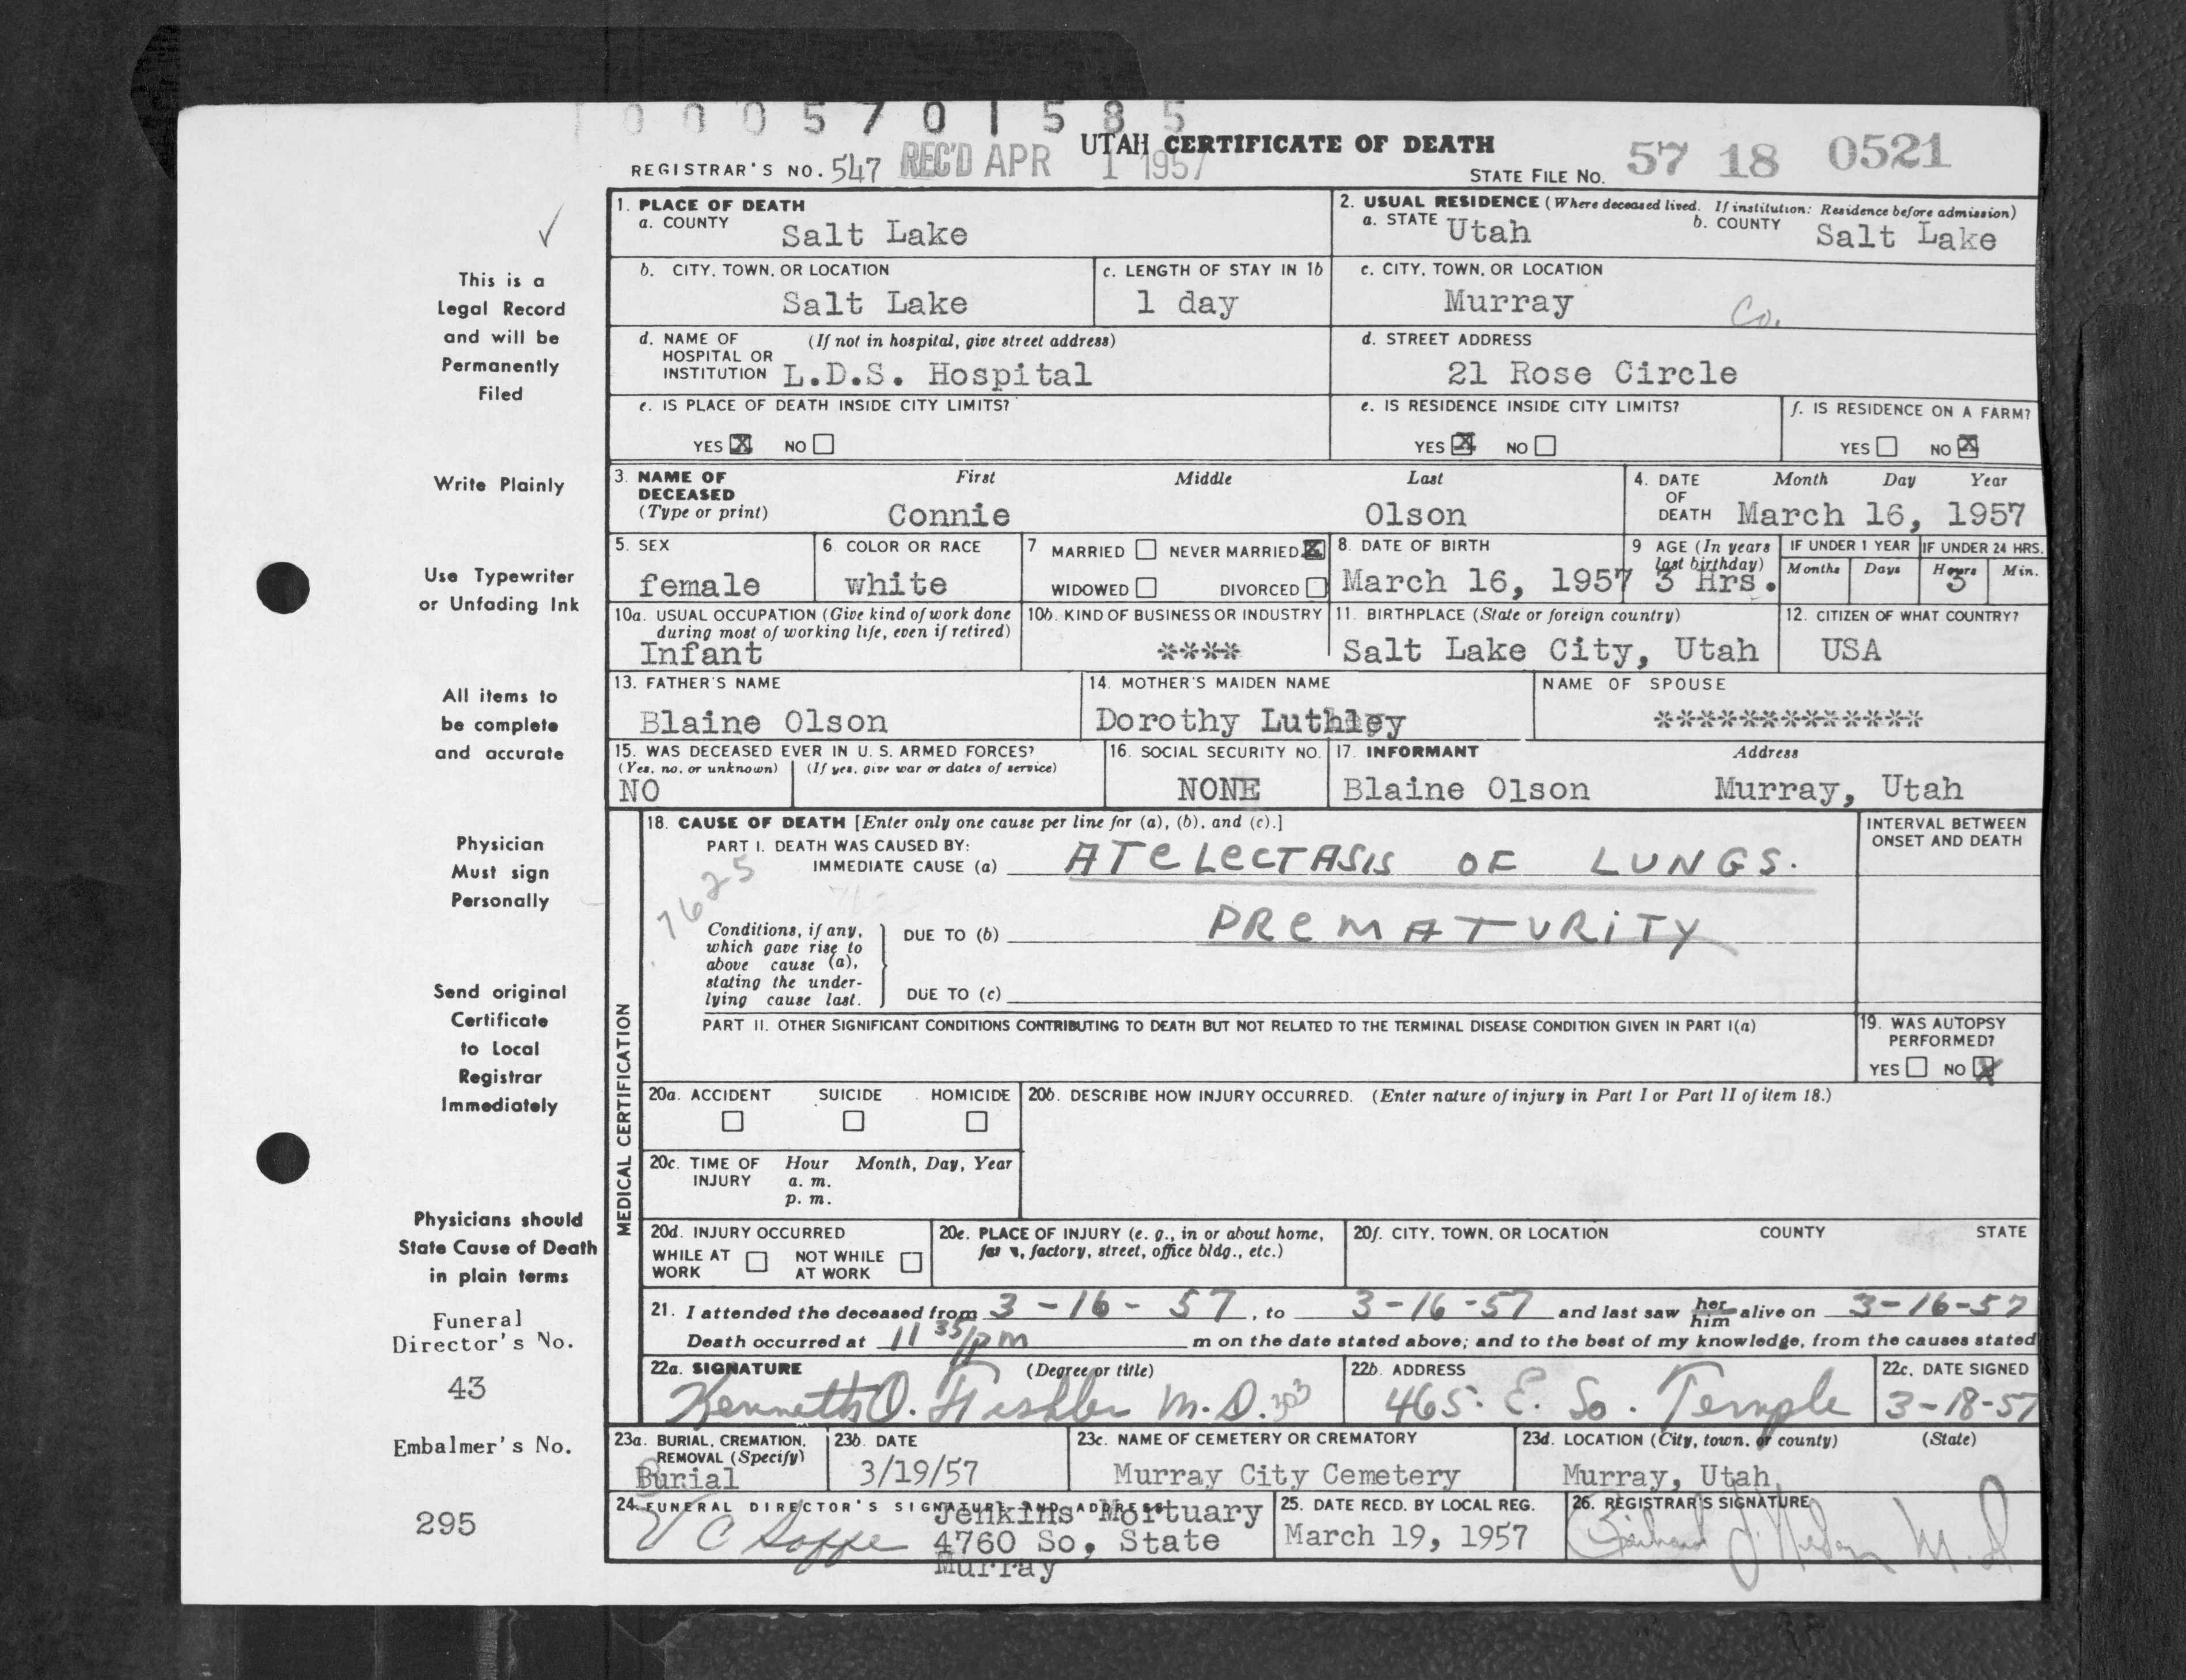 0005701585
UTAH CERTIFICATE OF DEATH
REGISTRAR'S NO. 547 REC'D APR 1 1957 STATE FILE NO. 57 18 0521
1. PLACE OF DEATH
a. COUNTY Salt Lake
2. USUAL RESIDENCE (Where deceased lived. If institution: Residence before admission)
a. STATE Utah b. COUNTY Salt Lake
b. CITY, TOWN, OR LOCATION Salt Lake
c. LENGTH OF STAY IN 1b 1 day
c. CITY, TOWN, OR LOCATION Murray Co.
d. NAME OF HOSPITAL OR INSTITUTION (If not in hospital, give street address) L.D.S. Hospital
d. STREET ADDRESS 21 Rose Circle
e. IS PLACE OF DEATH INSIDE CITY LIMITS?
YES X NO
e. IS RESIDENCE INSIDE CITY LIMITS?
YES X NO
f. IS RESIDENCE ON A FARM?
YES NO X
3. NAME OF DECEASED (Type or print)
First Middle Last
Connie Olson
4. DATE OF DEATH Month Day Year
March 16, 1957
5. SEX female
6. COLOR OR RACE white
7 MARRIED NEVER MARRIED X
WIDOWED DIVORCED
8. DATE OF BIRTH March 16, 1957
9 AGE (In years last birthday) 3 Hrs.
IF UNDER 1 YEAR Months Days
IF UNDER 24 HRS. Hours Min.
3
10a. USUAL OCCUPATION (Give kind of work done during most of working life, even if retired)
Infant
10b. KIND OF BUSINESS OR INDUSTRY
****
11. BIRTHPLACE (State or foreign country)
Salt Lake City, Utah
12. CITIZEN OF WHAT COUNTRY?
USA
13. FATHER'S NAME
Blaine Olson
14. MOTHER'S MAIDEN NAME
Dorothy Luthley
NAME OF SPOUSE
*************
15. WAS DECEASED EVER IN U. S. ARMED FORCES?
(Yes, no, or unknown) (If yes, give war or dates of service)
NO
16. SOCIAL SECURITY NO.
NONE
17. INFORMANT Address
Blaine Olson Murray, Utah
MEDICAL CERTIFICATION
18. CAUSE OF DEATH [Enter only one cause per line for (a), (b), and (c).]
PART I. DEATH WAS CAUSED BY:
IMMEDIATE CAUSE (a) ATELECTASIS OF LUNGS.
7625
Conditions, if any, which gave rise to above cause (a), stating the underlying cause last.
DUE TO (b) PREMATURITY
DUE TO (c)
INTERVAL BETWEEN ONSET AND DEATH
PART II. OTHER SIGNIFICANT CONDITIONS CONTRIBUTING TO DEATH BUT NOT RELATED TO THE TERMINAL DISEASE CONDITION GIVEN IN PART I(a)
19. WAS AUTOPSY PERFORMED?
YES NO X
20a. ACCIDENT SUICIDE HOMICIDE
20b. DESCRIBE HOW INJURY OCCURRED. (Enter nature of injury in Part I or Part II of item 18.)
20c. TIME OF INJURY Hour Month, Day, Year
a. m.
p. m.
20d. INJURY OCCURRED
WHILE AT WORK NOT WHILE AT WORK
20e. PLACE OF INJURY (e. g., in or about home, factory, street, office bldg., etc.)
20f. CITY, TOWN, OR LOCATION COUNTY STATE
21. I attended the deceased from 3-16-57, to 3-16-57 and last saw her him alive on 3-16-57
Death occurred at 11 35/pm m on the date stated above; and to the best of my knowledge, from the causes stated
22a. SIGNATURE (Degree or title)
Kenneth O. M.D. 303
22b. ADDRESS
465. E. So. Temple
22c. DATE SIGNED
3-18-57
23a. BURIAL, CREMATION, REMOVAL (Specify)
Burial
23b. DATE
3/19/57
23c. NAME OF CEMETERY OR CREMATORY
Murray City Cemetery
23d. LOCATION (City, town, or county) (State)
Murray, Utah
24. FUNERAL DIRECTOR'S SIGNATURE AND ADDRESS
Jenkins Mortuary
4760 So, State
Murray
25. DATE RECD. BY LOCAL REG.
March 19, 1957
26. REGISTRAR'S SIGNATURE
M.D.
This is a
Legal Record
and will be
Permanently
Filed
Write Plainly
Use Typewriter
or Unfading Ink
All items to
be complete
and accurate
Physician
Must sign
Personally
Send original
Certificate
to Local
Registrar
Immediately
Physicians should
State Cause of Death
in plain terms
Funeral
Director's No.
43
Embalmer's No.
295